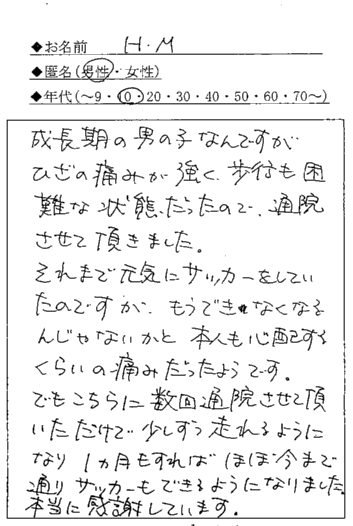 ◆お名前 H.M
◆匿名(男性・女性)
◆年代(〜9・10・20・30・40・50・60・70〜)
成長期の男の子なんですが
ひざの痛みが強く、歩行も困
難な状態だったので、通院
させて頂きました。
それまで元気にサッカーをしてい
たのですが、もうできなくなる
んじゃないかと本人も心配する
くらいの痛みだったようです。
でもこちらに数回通院させて頂
いただけで少しずつ走れるように
なり1ヵ月もすればほぼ今まで
通りサッカーもできるようになりました。
本当に感謝しています。